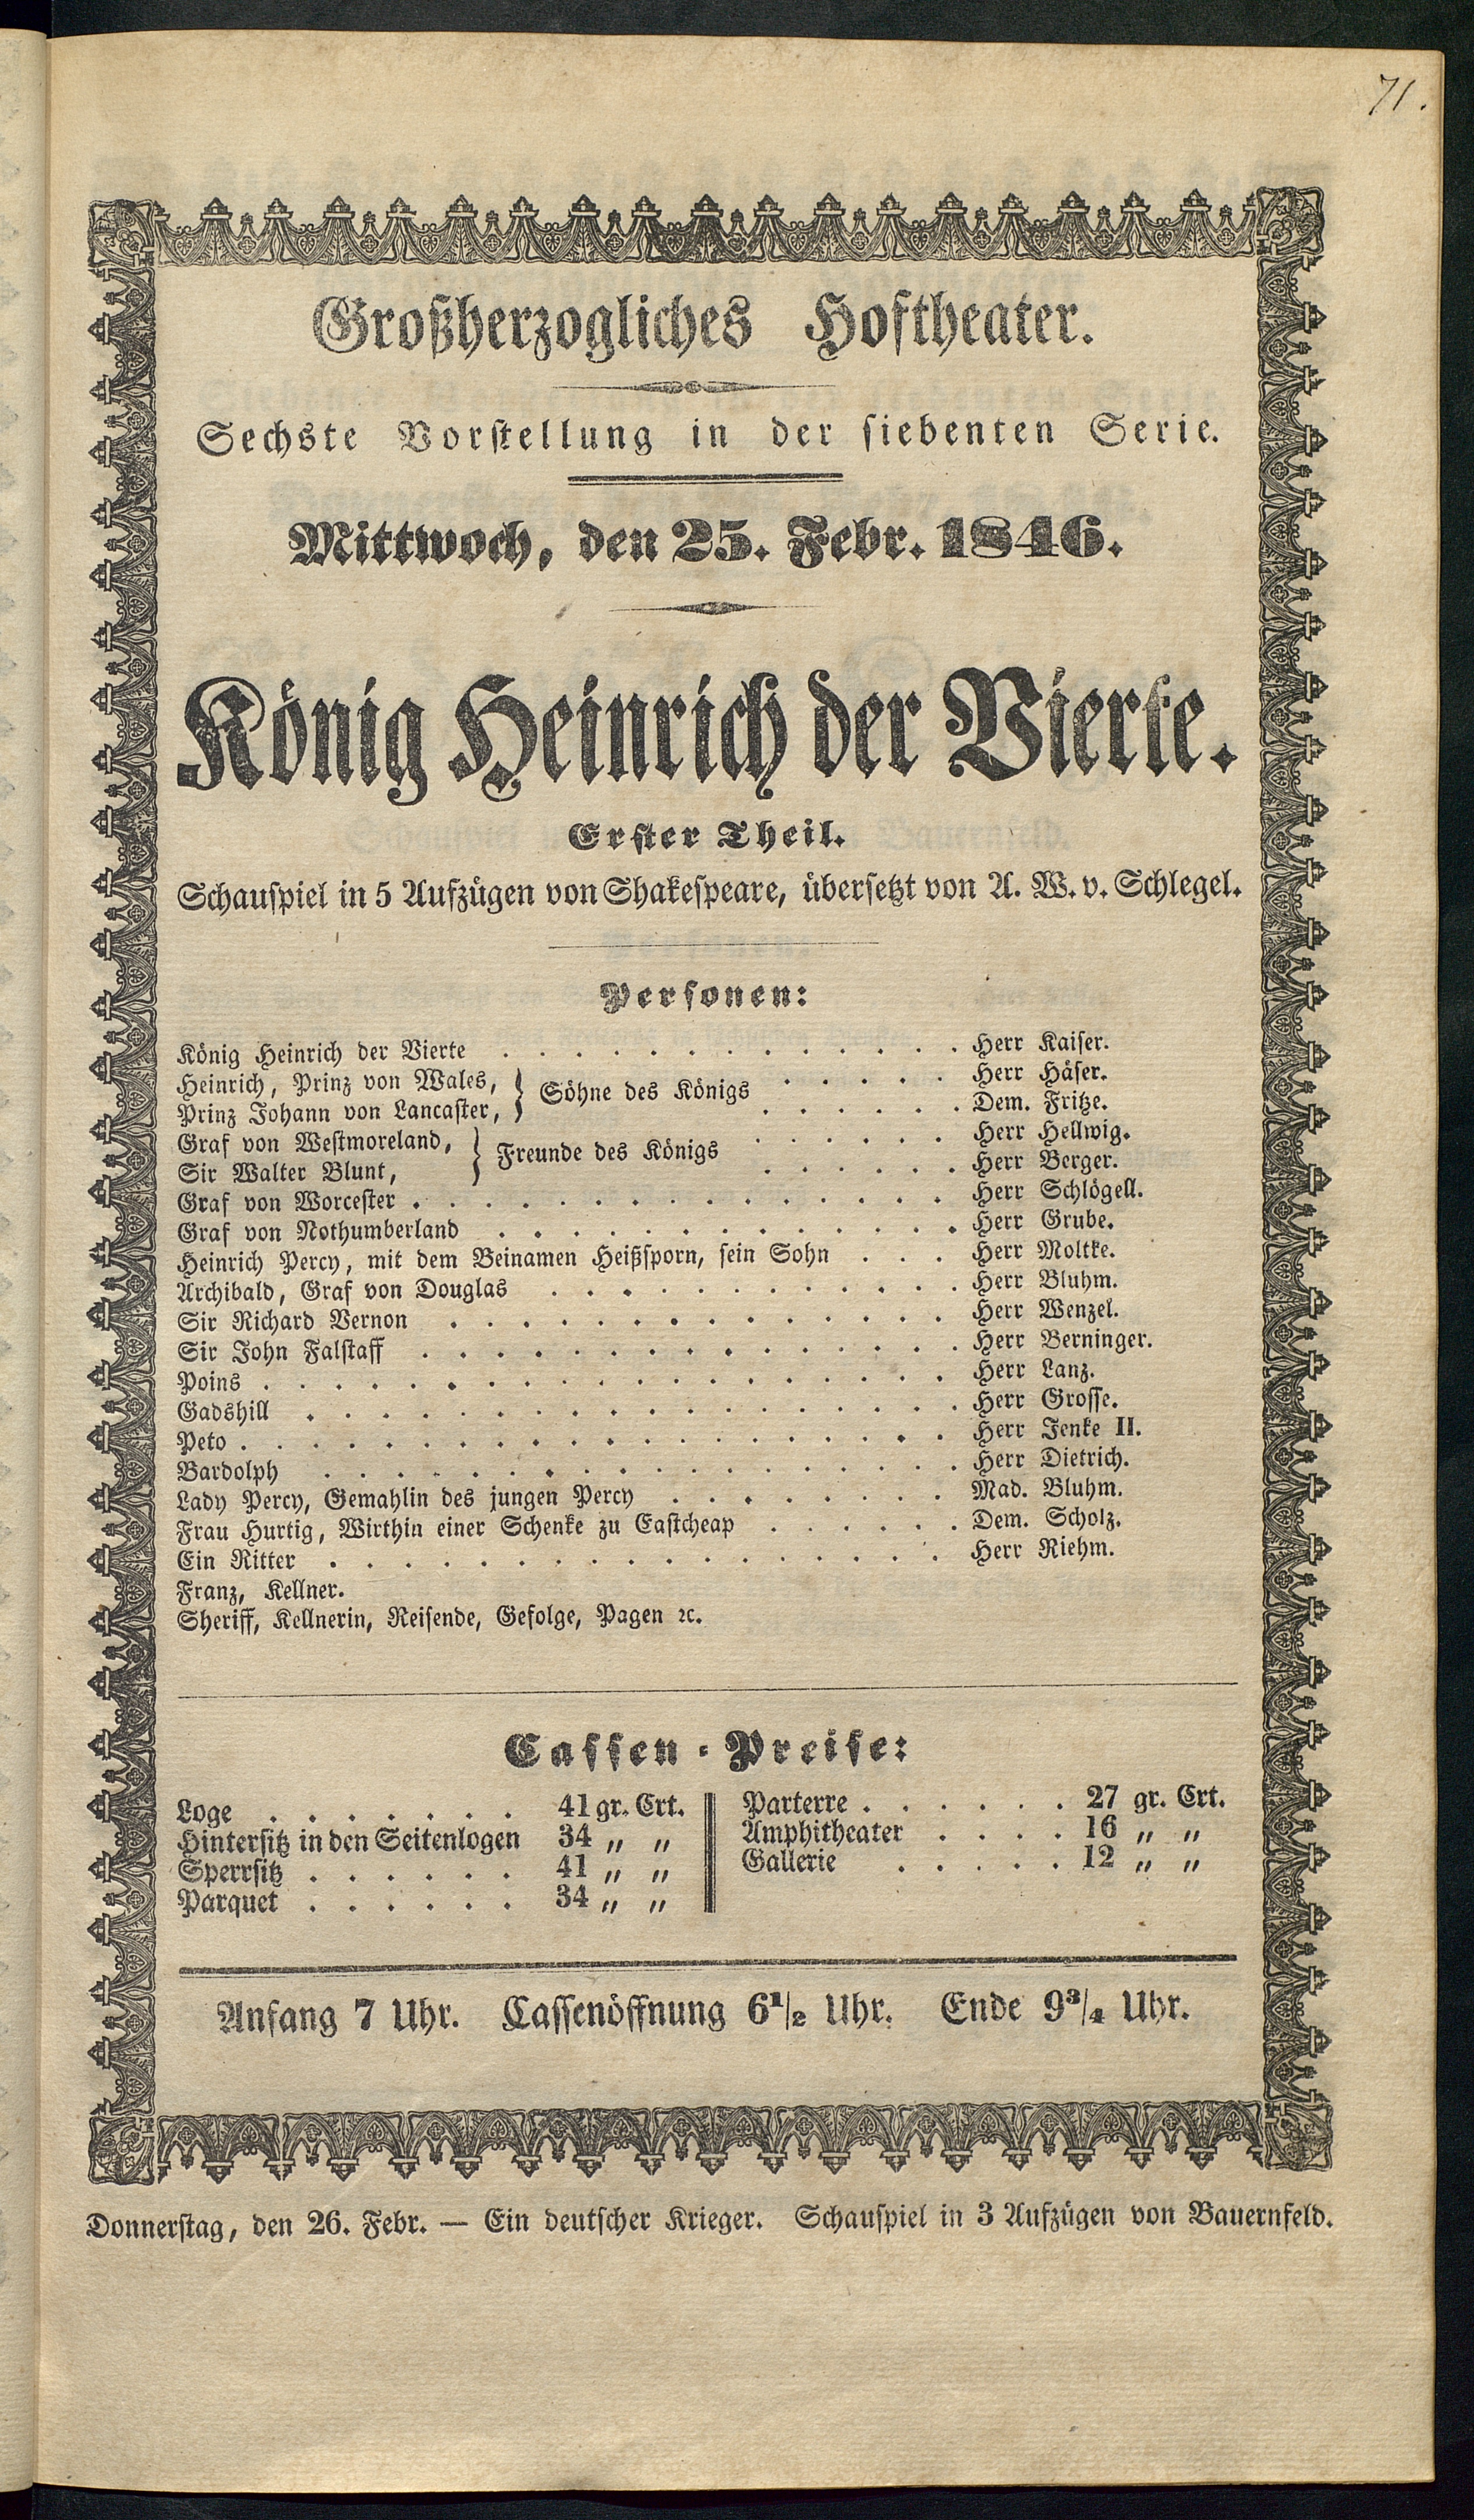 71.
Großherzogliches Hoftheater.
Sechste Vorstellung in der siebenten Serie.
Mittwoch, den 25. Febr. 1846.
König Heinrich der Vierte.
Erster Theil.
Schauspiel in 5 Aufzügen von Shakespeare, übersetzt von A. W. v. Schlegel.
Personen:
König Heinrich der Vierte . . . . . . . . . . . . . Herr Kaiser.
Heinrich, Prinz von Wales, } Söhne des Königs . . . . . Herr Häser.
Prinz Johann von Lancaster, } . . . . . . Dem. Fritze.
Graf von Westmoreland, } Freunde des Königs . . . . . . Herr Hellwig.
Sir Walter Blunt, } . . . . . . Herr Berger.
Graf von Worcester . . . . . . . . . . . . . . . Herr Schlögell.
Graf von Nothumberland . . . . . . . . . . . . . Herr Grube.
Heinrich Percy, mit dem Beinamen Heißsporn, sein Sohn . . . Herr Moltke.
Archibald, Graf von Douglas . . . . . . . . . . . . Herr Bluhm.
Sir Richard Vernon . . . . . . . . . . . . . . Herr Wenzel.
Sir John Falstaff . . . . . . . . . . . . . . . Herr Berninger.
Poins . . . . . . . . . . . . . . . . . . . Herr Lanz.
Gadshill . . . . . . . . . . . . . . . . . . Herr Grosse.
Peto . . . . . . . . . . . . . . . . . . . . Herr Jenke II.
Bardolph . . . . . . . . . . . . . . . . . . Herr Dietrich.
Lady Percy, Gemahlin des jungen Percy . . . . . . . . Mad. Bluhm.
Frau Hurtig, Wirthin einer Schenke zu Eastcheap . . . . . . Dem. Scholz.
Ein Ritter . . . . . . . . . . . . . . . . . Herr Riehm.
Franz, Kellner.
Sheriff, Kellnerin, Reisende, Gefolge, Pagen ꝛc.
Cassen-Preise:
Loge . . . . . . . 41 gr. Crt.
Hintersitz in den Seitenlogen 34 „ „
Sperrsitz . . . . . . 41 „ „
Parquet . . . . . . 34 „ „
Parterre . . . . . . 27 gr. Crt.
Amphitheater . . . . 16 „ „
Gallerie . . . . . 12 „ „
Anfang 7 Uhr. Cassenöffnung 6½ Uhr. Ende 9¾ Uhr.
Donnerstag, den 26. Febr. — Ein deutscher Krieger. Schauspiel in 3 Aufzügen von Bauernfeld.